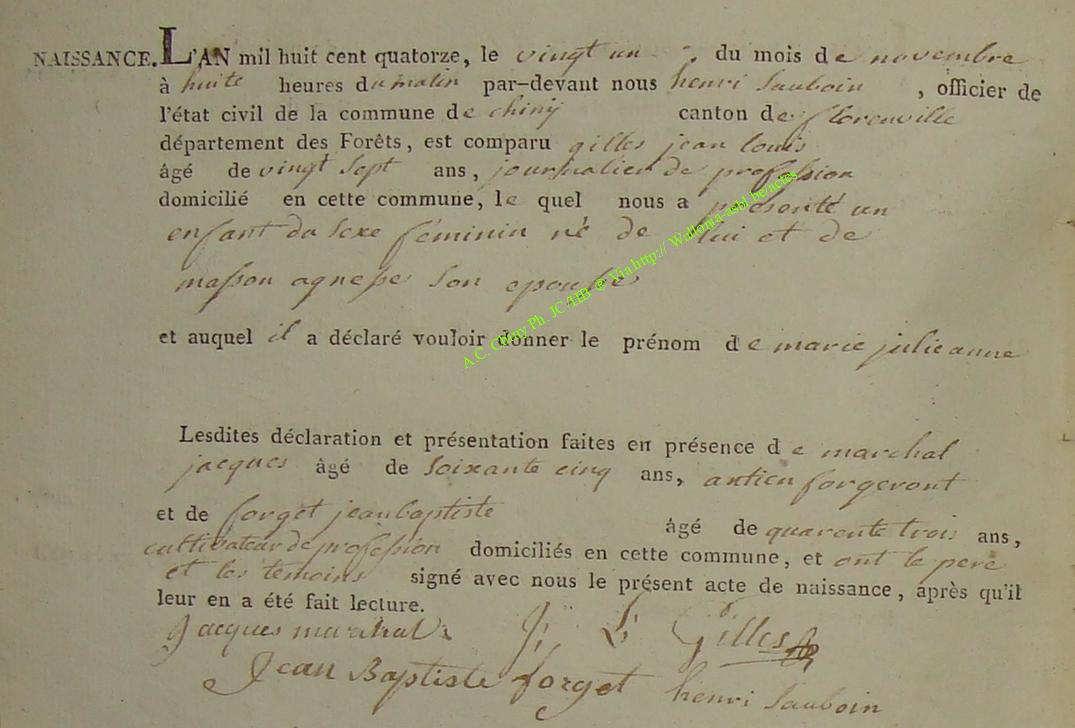 NAISSANCE. L'AN mil huit cent quatorze, le vingt un du mois de novembre
à huite heures du matin par-devant nous henri Sauboin , officier de
l'état civil de la commune de chiny canton de florenville
département des Forêts, est comparu gilles jean louis
âgé de vingt Sept ans, journalier de profession
domicilié en cette commune, le quel nous a présenté un
enfant du Sexe féminin né de lui et de
masson agnesse son epouse
et auquel il a déclaré vouloir donner le prénom de marie julie anne
Lesdites déclaration et présentation faites en présence de marchal
jacques âgé de soixante cinq ans, antien forgeront
et de forget jean baptiste âgé de quarente trois ans,
cultivateur de profession domiciliés en cette commune, et ont le pere
et les temoins signé avec nous le présent acte de naissance, après qu'il
leur en a été fait lecture.
Jacques marchal J: L: Gilles
Jean Baptiste forget henri Sauboin
A.C. Chiny Ph. JC-THB @ Via http:// Wallonia-asbl.be/actes